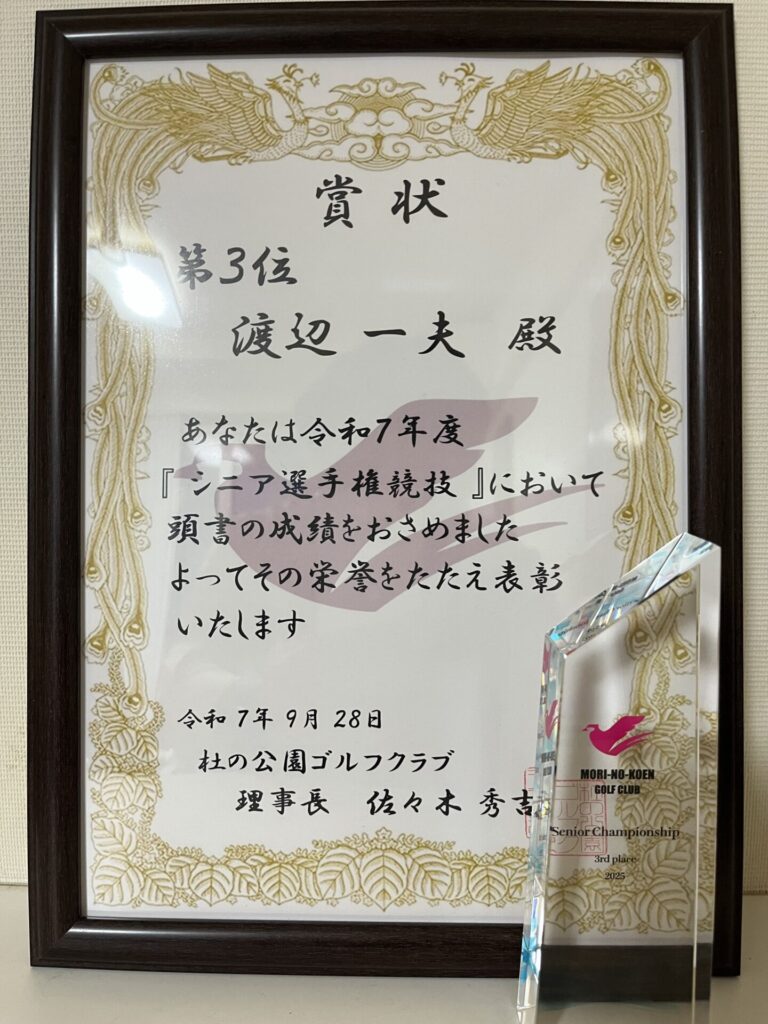 賞状
第3位
渡辺 一夫 殿
あなたは令和7年度
『シニア選手権競技』において
頭書の成績をおさめました
よってその栄誉をたたえ表彰
いたします
令和7年9月28日
杜の公園ゴルフクラブ
理事長 佐々木 秀吉
MORI-NO-KOEN
GOLF CLUB
Senior Championship
3rd place
2025